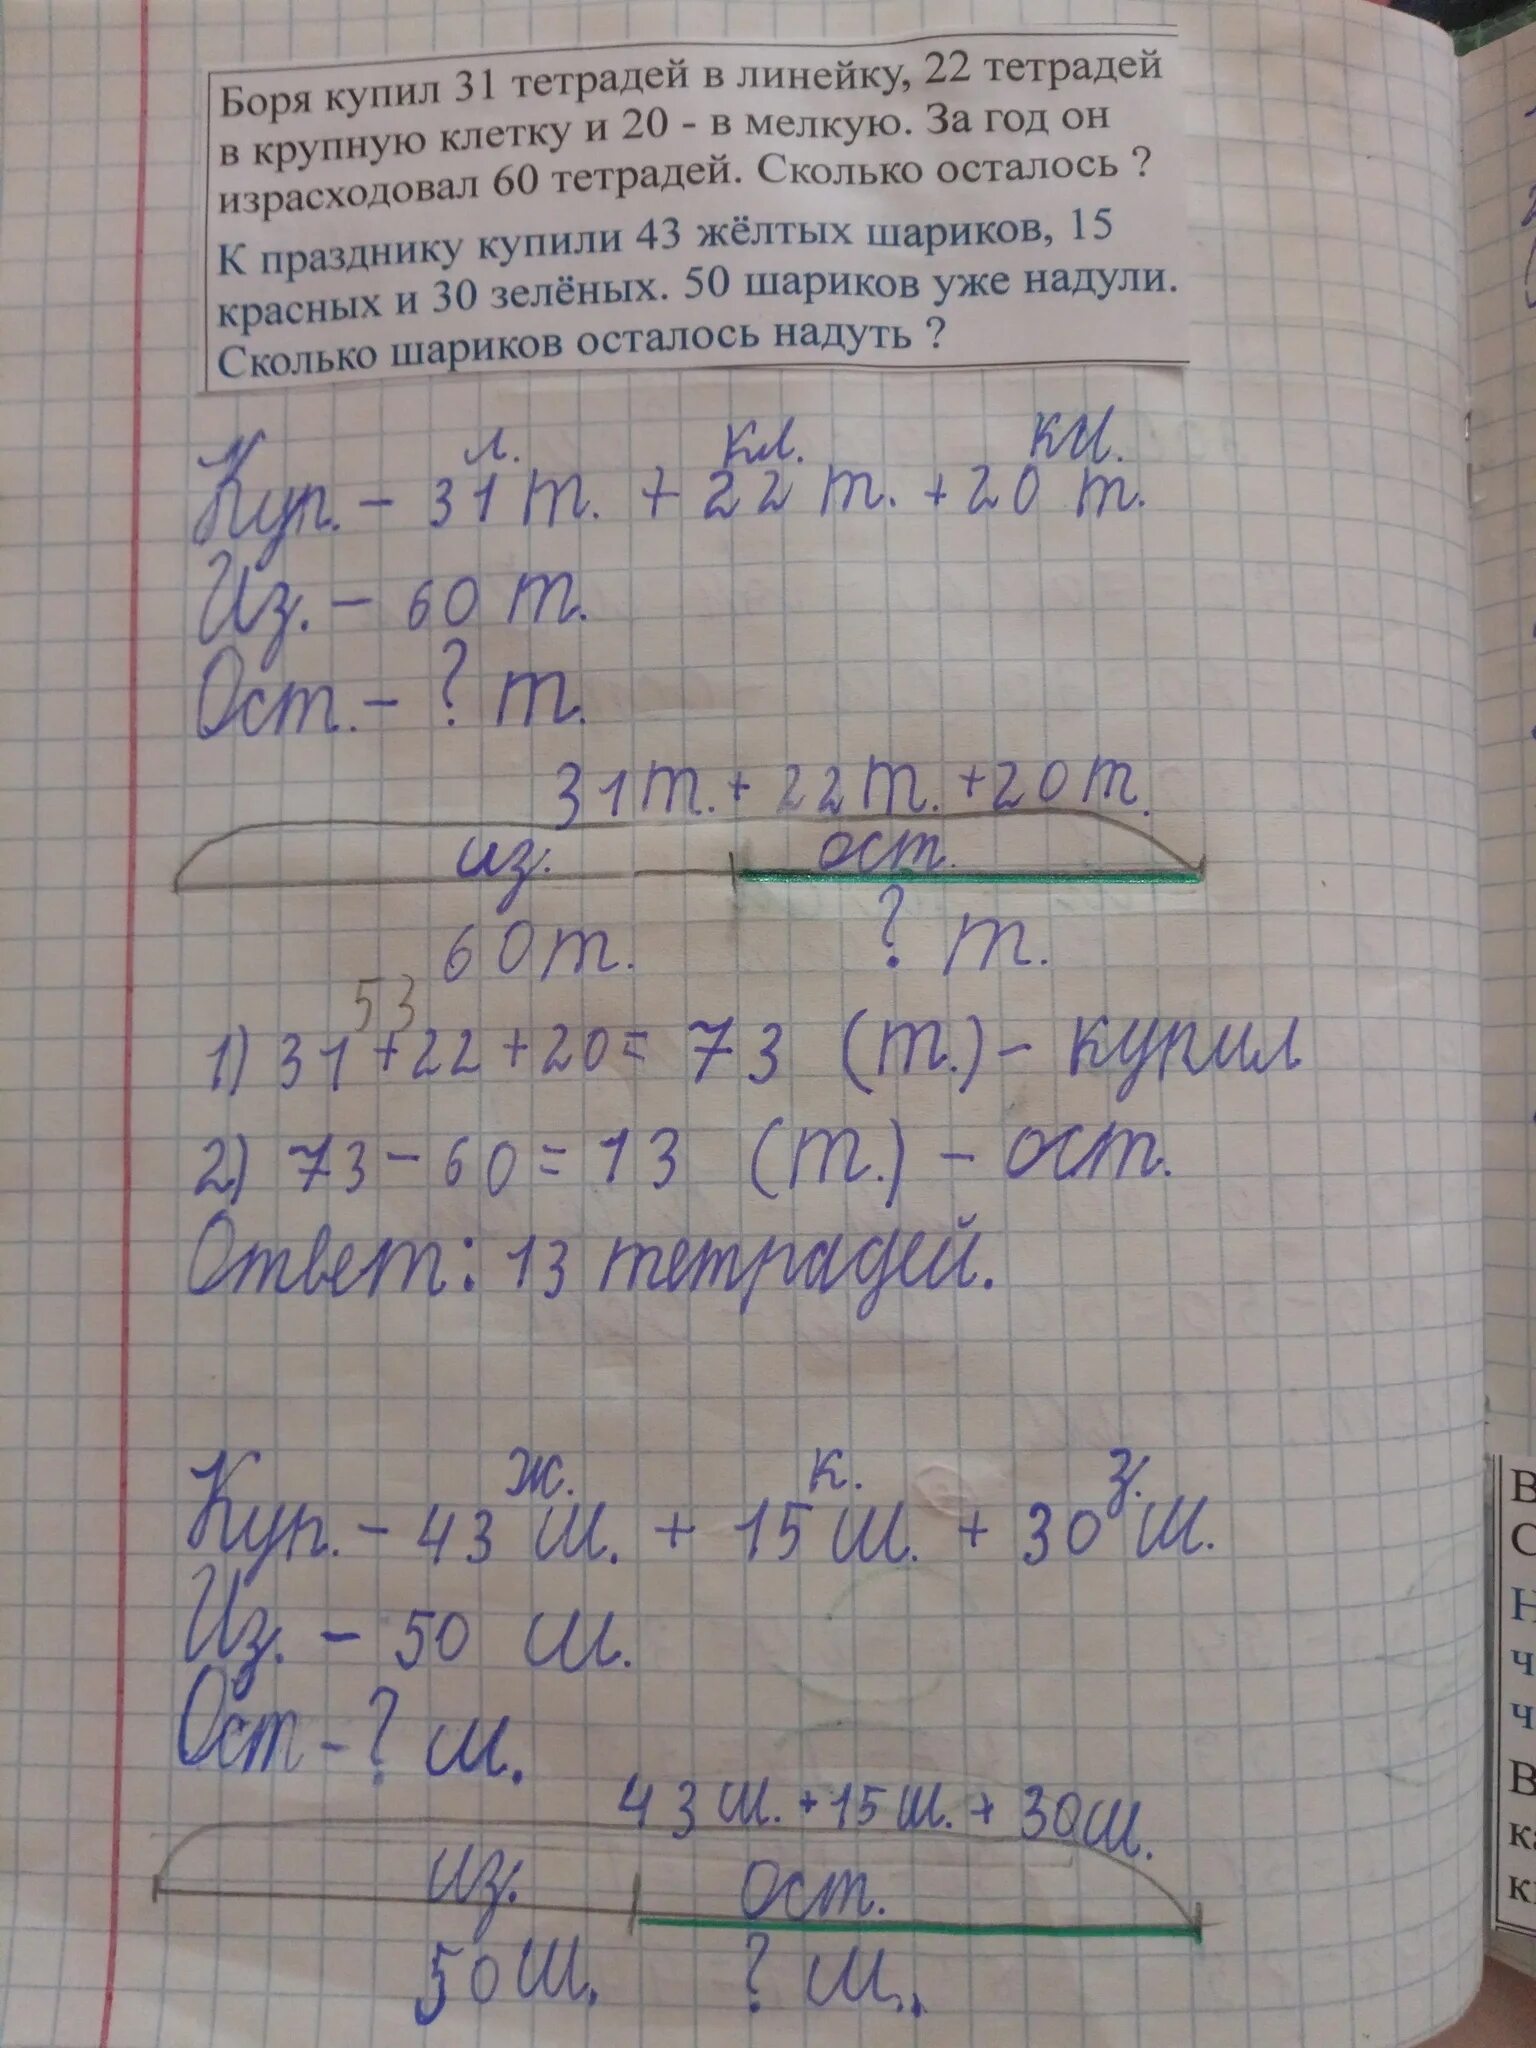 Боря купил 31 тетрадей в линейку, 22 тетрадей
в крупную клетку и 20 - в мелкую. За год он
израсходовал 60 тетрадей. Сколько осталось ?
К празднику купили 43 жёлтых шариков, 15
красных и 30 зелёных. 50 шариков уже надули.
Сколько шариков осталось надуть ?
л. кл. кл.
Куп. - 31 т. + 22 т. + 20 т.
Из. - 60 т.
Ост. - ? т.
31 т. + 22 т. + 20 т.
из. ост.
60 т. ? т.
53
1) 31 + 22 + 20 = 73 (т.) - купил
2) 73 - 60 = 13 (т.) - ост.
Ответ: 13 тетрадей.
ж. к. з.
Куп. - 43 ш. + 15 ш. + 30 ш.
Из. - 50 ш.
Ост - ? ш.
43 ш. + 15 ш. + 30 ш.
из. ост.
50 ш. ? ш.